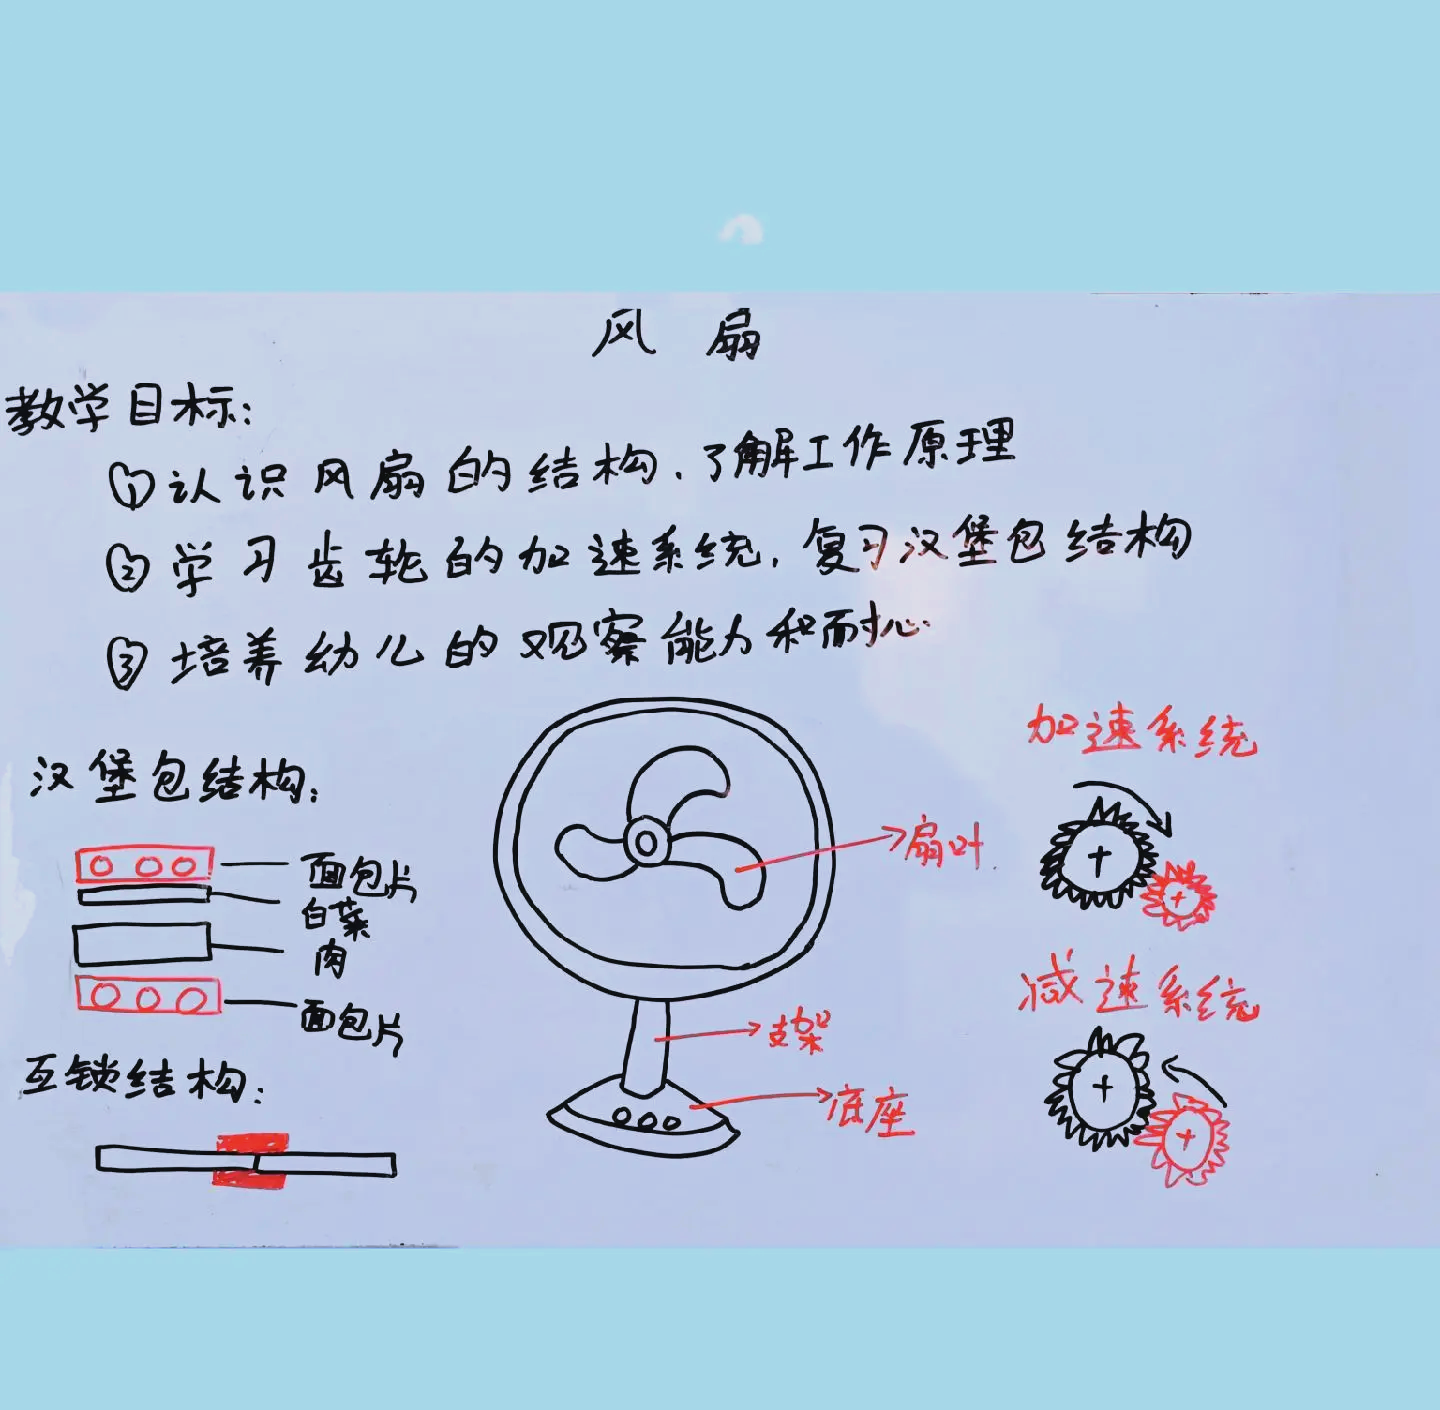 风 扇
教学目标:
①认识风扇的结构、了解工作原理
②学习齿轮的加速系统,复习汉堡包结构
③培养幼儿的观察能力和耐心.
汉堡包结构:
面包片
白菜
肉
面包片
互锁结构:
扇叶
支架
底座
加速系统
减速系统